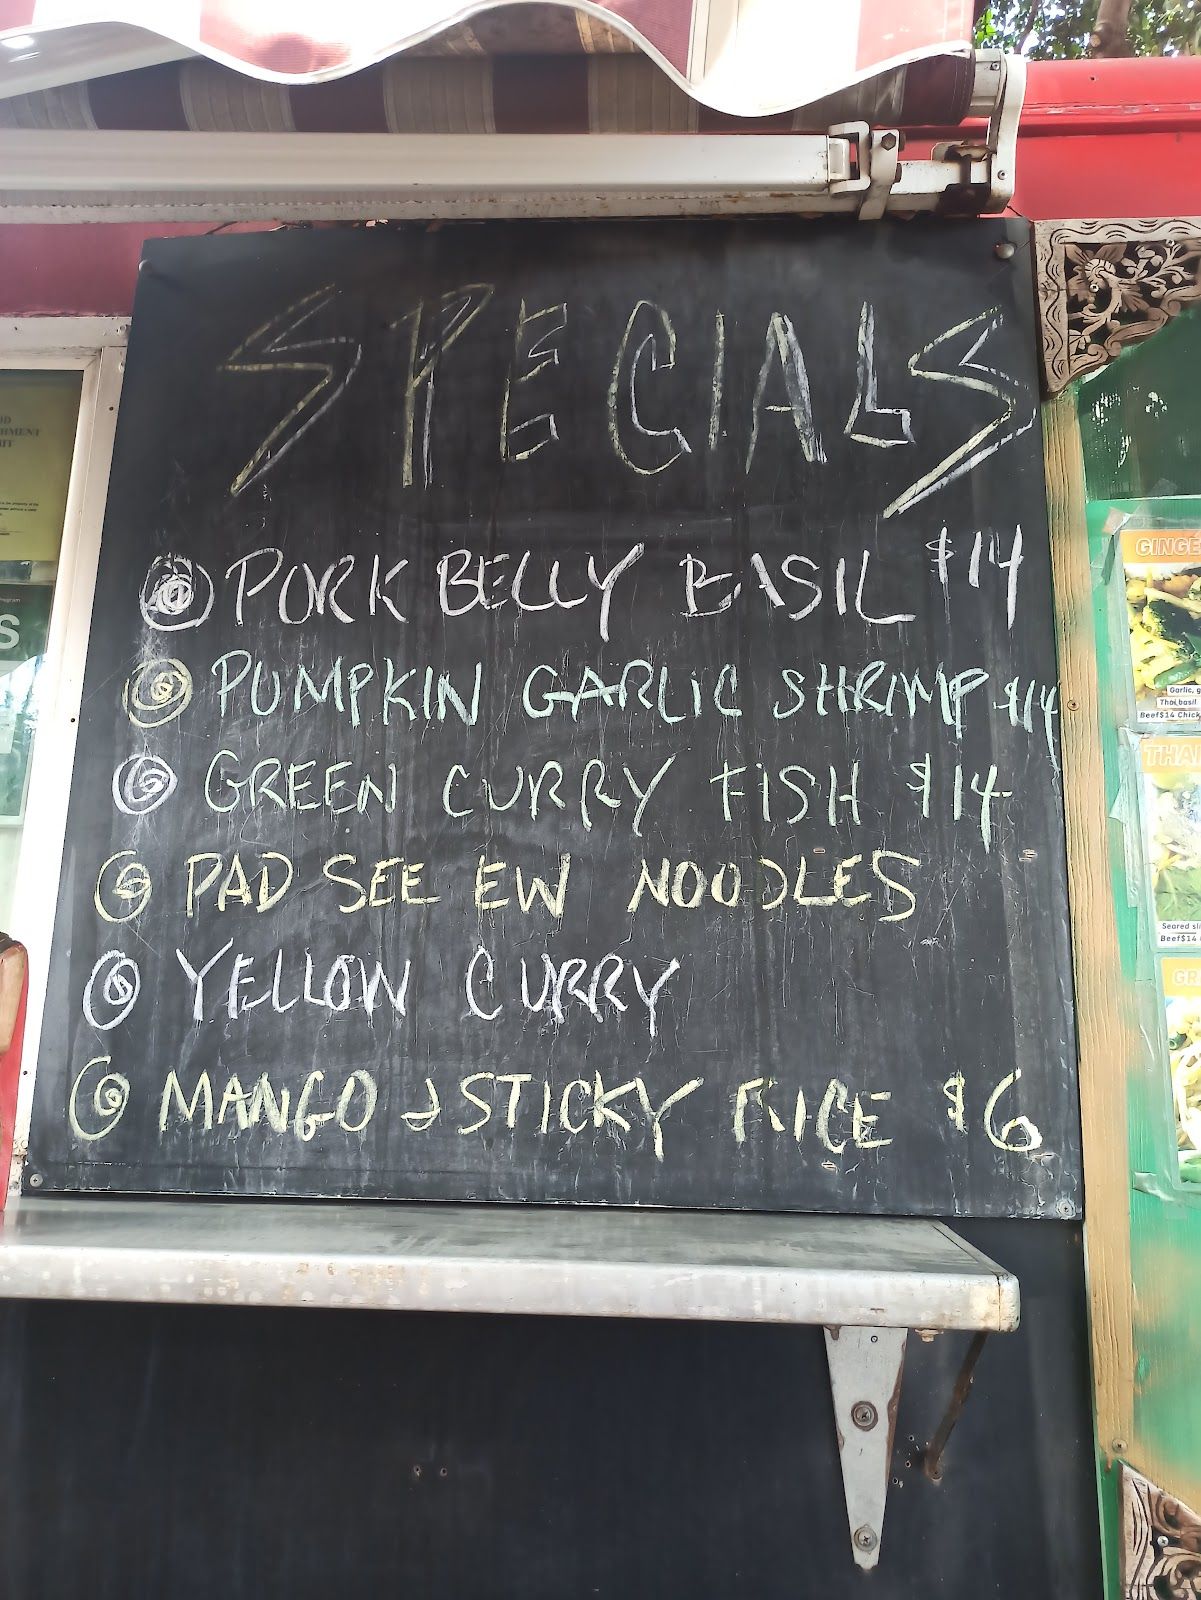 SPECIALS
PORK BELLY BASIL $14
PUMPKIN GARLIC SHRIMP $14
GREEN CURRY FISH $14
PAD SEE EW NOODLES
YELLOW CURRY
MANGO & STICKY RICE $6
GINGE
Garlic, g
Thai basil
Beef$14 Chick
THA
Seared sli
Beef$14
GR
S